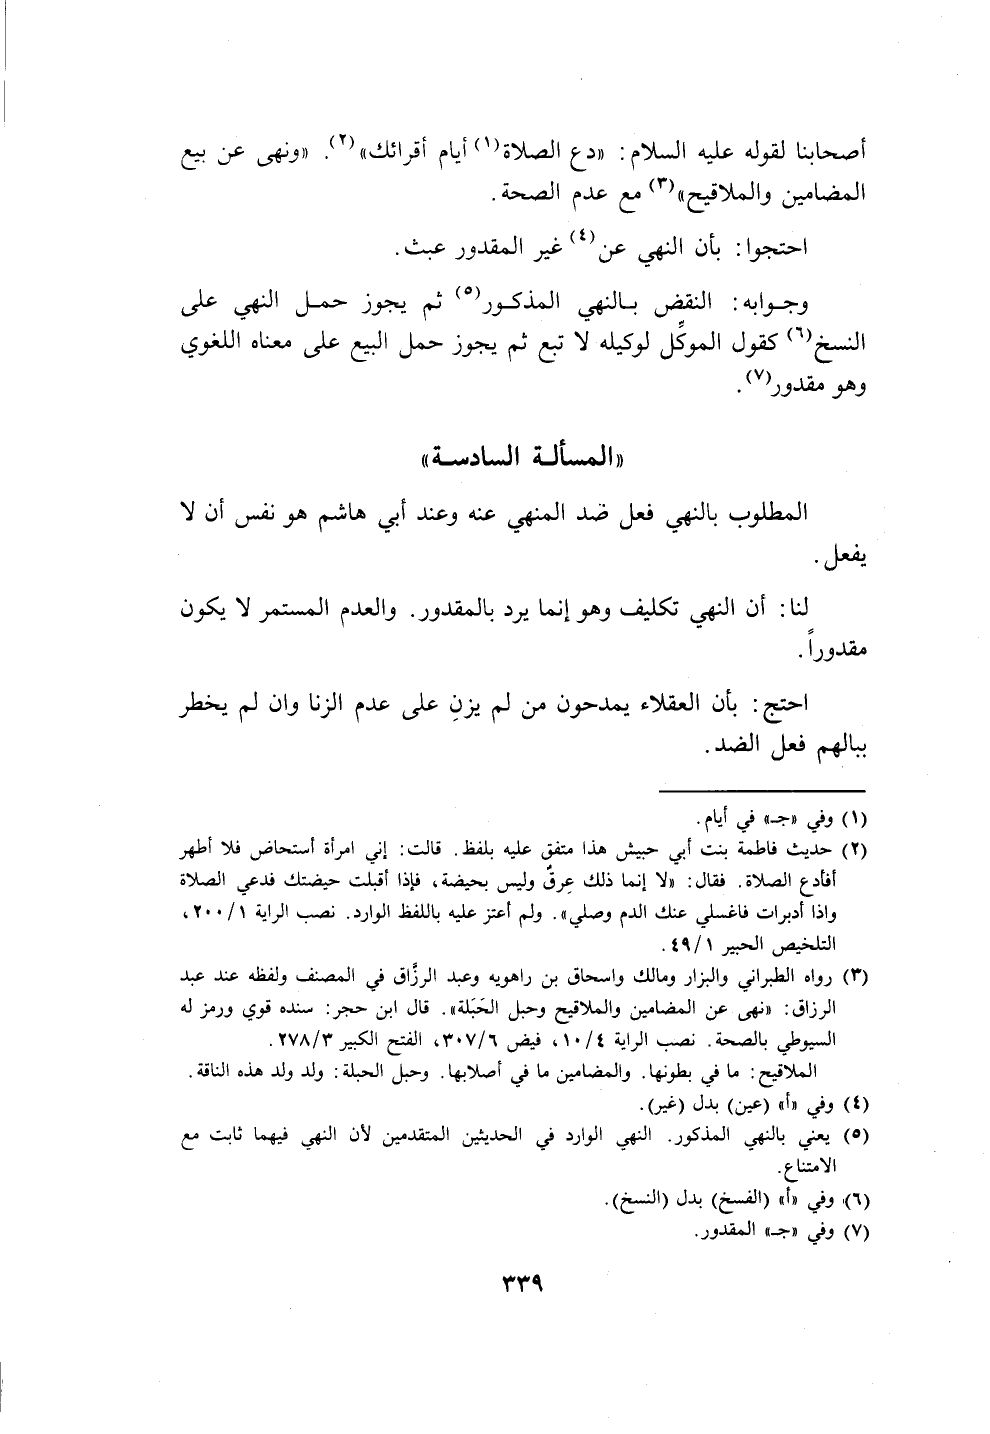 أصحابنا لقوله عليه السلام: «دع الصلاة(١) أيام أقرائك»(٢). «ونهى عن بيع
المضامين والملاقيح»(٣) مع عدم الصحة.
احتجوا: بأن النهي عن(٤) غير المقدور عبث.
وجوابه: النقض بالنهي المذكور(٥) ثم يجوز حمل النهي على
النسخ(٦) كقول الموكِّل لوكيله لا تبع ثم يجوز حمل البيع على معناه اللغوي
وهو مقدور(٧).
«المسألة السادسة»
المطلوب بالنهي فعل ضد المنهي عنه وعند أبي هاشم هو نفس أن لا
يفعل.
لنا: أن النهي تكليف وهو إنما يرد بالمقدور. والعدم المستمر لا يكون
مقدوراً.
احتج: بأن العقلاء يمدحون من لم يزنِ على عدم الزنا وان لم يخطر
ببالهم فعل الضد.
(١) وفي «جـ» في أيام.
(٢) حديث فاطمة بنت أبي حبيش هذا متفق عليه بلفظ. قالت: إني امرأة أستحاض فلا أطهر
أفأدع الصلاة. فقال: «لا إنما ذلك عِرقٌ وليس بحيضة، فإذا أقبلت حيضتك فدعي الصلاة
واذا أدبرات فاغسلي عنك الدم وصلي». ولم أعتز عليه باللفظ الوارد. نصب الراية ٢٠٠/١،
التلخيص الحبير ٤٩/١.
(٣) رواه الطبراني والبزار ومالك واسحاق بن راهويه وعبد الرزَّاق في المصنف ولفظه عند عبد
الرزاق: «نهى عن المضامين والملاقيح وحبل الحَبَلة». قال ابن حجر: سنده قوي ورمز له
السيوطي بالصحة. نصب الراية ١٠/٤، فيض ٣٠٧/٦، الفتح الكبير ٢٧٨/٣.
الملاقيح: ما في بطونها. والمضامين ما في أصلابها. وحبل الحبلة: ولد ولد هذه الناقة.
(٤) وفي «أ» (عين) بدل (غير).
(٥) يعني بالنهي المذكور. النهي الوارد في الحديثين المتقدمين لأن النهي فيهما ثابت مع
الامتناع.
(٦) وفي «أ» (الفسخ) بدل (النسخ).
(٧) وفي «جـ» المقدور.
٣٣٩